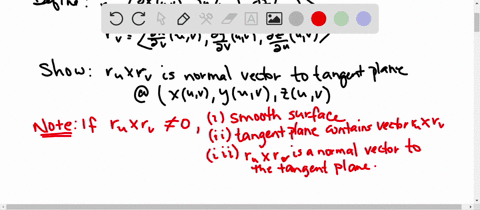 r_v = ⟨∂x/∂v (u,v), ∂y/∂v (u,v), ∂z/∂u (u,v)⟩
Show: r_u x r_v is normal vector to tangent plane
@ (x(u,v), y(u,v), z(u,v)
Note: If r_u x r_v ≠ 0, (i) smooth surface
(ii) tangent plane contains vector r_u x r_v
(iii) r_u x r_v is a normal vector to
the tangent plane.